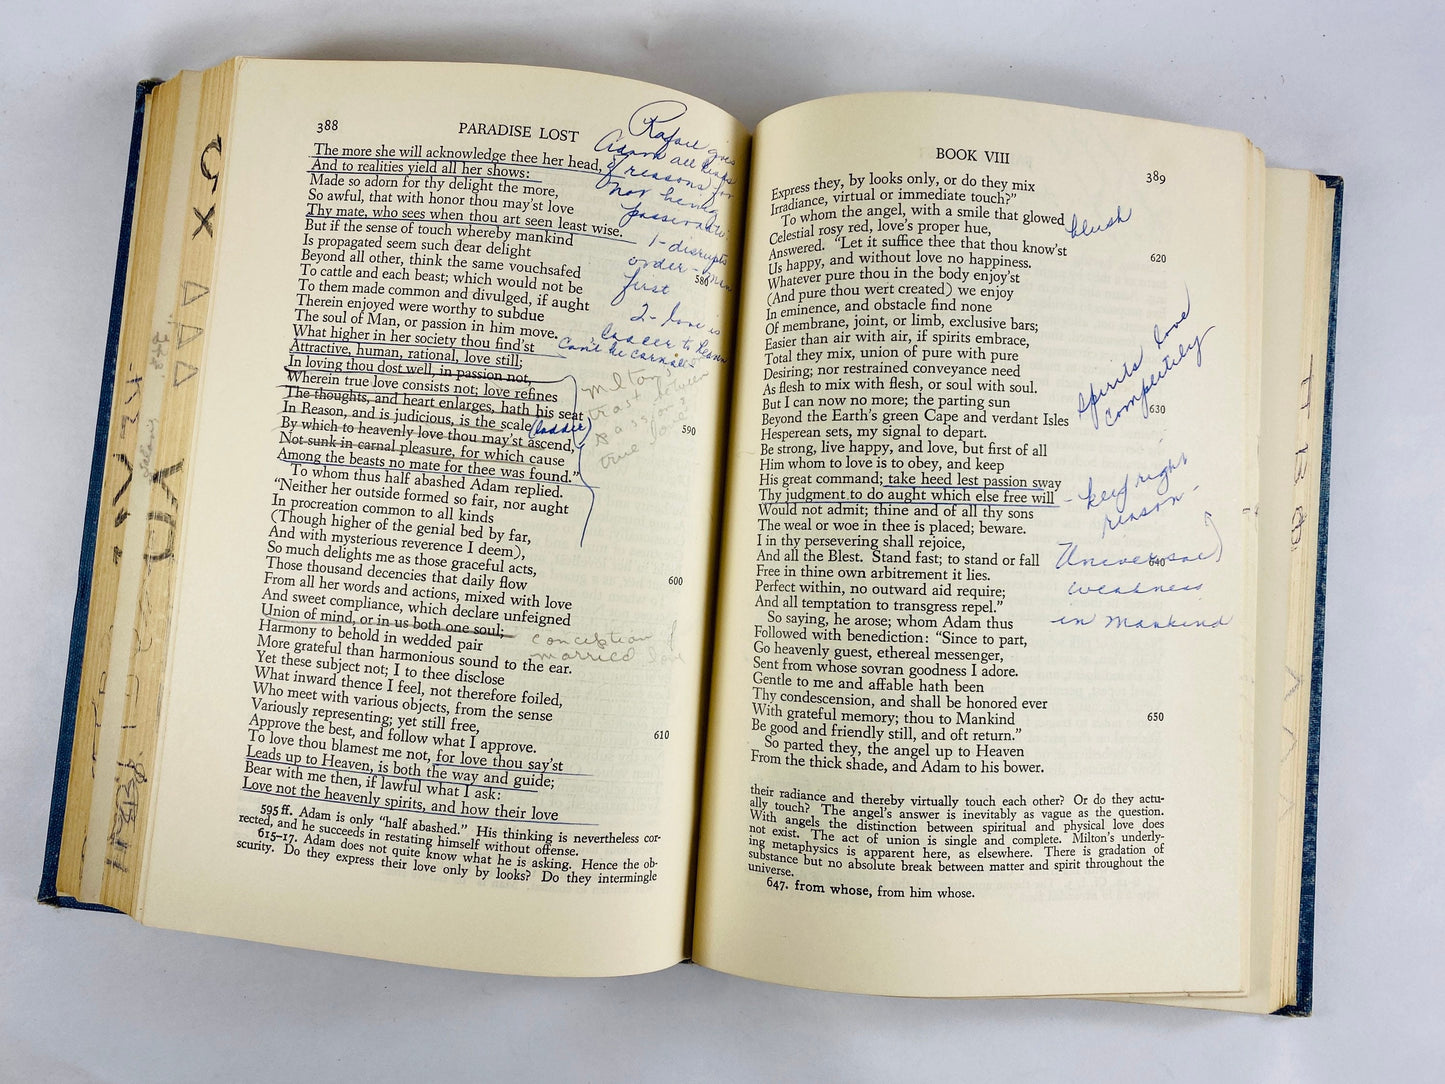 388
PARADISE LOST
The more she will acknowledge thee her head,
And to realities yield all her shows:
Made so adorn for thy delight the more,
So awful, that with honor thou may'st love
Thy mate, who sees when thou art seen least wise.
But if the sense of touch whereby mankind
Is propagated seem such dear delight
Beyond all other, think the same vouchsafed
To cattle and each beast; which would not be
580
To them made common and divulged, if aught
Therein enjoyed were worthy to subdue
The soul of Man, or passion in him move.
What higher in her society thou find'st
Attractive, human, rational, love still;
In loving thou dost well, in passion not,
Wherein true love consists not; love refines
The thoughts, and heart enlarges, hath his seat
In Reason, and is judicious, is the scale
590
By which to heavenly love thou may'st ascend,
Not sunk in carnal pleasure, for which cause
Among the beasts no mate for thee was found."
To whom thus half abashed Adam replied.
"Neither her outside formed so fair, nor aught
In procreation common to all kinds
(Though higher of the genial bed by far,
And with mysterious reverence I deem),
So much delights me as those graceful acts,
Those thousand decencies that daily flow
600
From all her words and actions, mixed with love
And sweet compliance, which declare unfeigned
Union of mind, or in us both one soul;
Harmony to behold in wedded pair
More grateful than harmonious sound to the ear.
Yet these subject not; I to thee disclose
What inward thence I feel, not therefore foiled,
Who meet with various objects, from the sense
Variously representing; yet still free,
610
Approve the best, and follow what I approve.
To love thou blamest me not, for love thou say'st
Leads up to Heaven, is both the way and guide;
Bear with me then, if lawful what I ask:
Love not the heavenly spirits, and how their love
595 ff. Adam is only "half abashed." His thinking is nevertheless cor-
rected, and he succeeds in restating himself without offense.
615-17. Adam does not quite know what he is asking. Hence the ob-
scurity. Do they express their love only by looks? Do they intermingle
Adam all kinds
of reasons for
not being
passionate:
1 - disrupts
order - man
first
2 - love is
ladder to heaven
can't be carnal
(ladder)
true love
conception of
married love
BOOK VIII
389
Express they, by looks only, or do they mix
Irradiance, virtual or immediate touch?"
To whom the angel, with a smile that glowed
Celestial rosy red, love's proper hue,
Answered. "Let it suffice thee that thou know'st
620
Us happy, and without love no happiness.
Whatever pure thou in the body enjoy'st
(And pure thou wert created) we enjoy
In eminence, and obstacle find none
Of membrane, joint, or limb, exclusive bars;
Easier than air with air, if spirits embrace,
Total they mix, union of pure with pure
Desiring; nor restrained conveyance need
As flesh to mix with flesh, or soul with soul.
But I can now no more; the parting sun
630
Beyond the Earth's green Cape and verdant Isles
Hesperean sets, my signal to depart.
Be strong, live happy, and love, but first of all
Him whom to love is to obey, and keep
His great command; take heed lest passion sway
Thy judgment to do aught which else free will
Would not admit; thine and of all thy sons
The weal or woe in thee is placed; beware.
I in thy persevering shall rejoice,
And all the Blest. Stand fast; to stand or fall
640
Free in thine own arbitrement it lies.
Perfect within, no outward aid require;
And all temptation to transgress repel."
So saying, he arose; whom Adam thus
Followed with benediction: "Since to part,
Go heavenly guest, ethereal messenger,
Sent from whose sovran goodness I adore.
Gentle to me and affable hath been
Thy condescension, and shall be honored ever
With grateful memory; thou to Mankind
650
Be good and friendly still, and oft return."
So parted they, the angel up to Heaven
From the thick shade, and Adam to his bower.
their radiance and thereby virtually touch each other? Or do they actu-
ally touch? The angel's answer is inevitably as vague as the question.
With angels the distinction between spiritual and physical love does
not exist. The act of union is single and complete. Milton's underly-
ing metaphysics is apparent here, as elsewhere. There is gradation of
substance but no absolute break between matter and spirit throughout the
universe.
647. from whose, from him whose.
blush
spirits love
completely
- keep right
reason -
Universal
weakness
in mankind